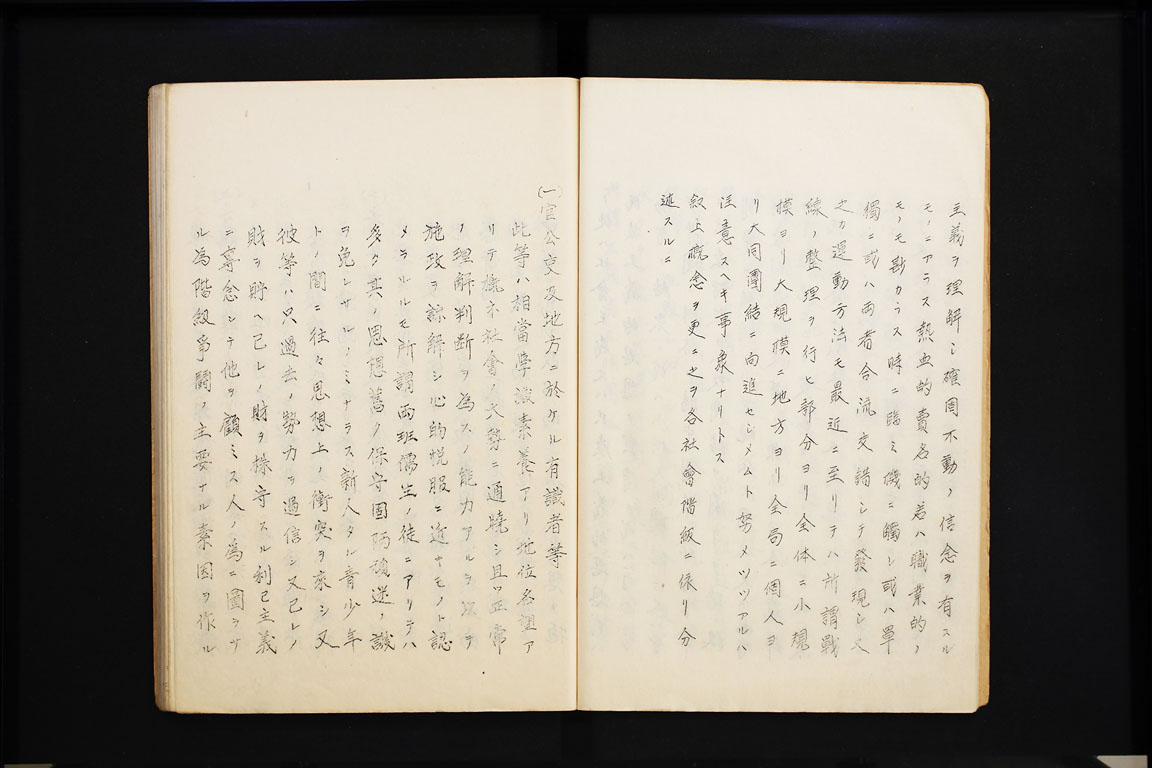 主義ヲ理解シ確固不動ノ信念ヲ有スル
モノニアラス熱血的賣名的若ハ職業的ノ
モノモ尠カラス時ニ臨ミ機ニ觸レ或ハ單
獨ニ或ハ両者合流交錯シテ發現シ又
之カ運動方法モ最近ニ至リテハ所謂戰
線ノ整理ヲ行ヒ部分ヨリ全体ニ小規
模ヨリ大規模ニ地方ヨリ全局ニ個人ヨ
リ大同團結ニ向進セシメムト努メツツアルハ
注意スヘキ事象ナリトス
叙上概念ヲ更ニ之ヲ各社會階級ニ係リ分
述スルニ
(一)官公吏及地方ニ於ケル有識者等
此等ハ相當學識素養アリ地位名望ア
リテ概ネ社會ノ大勢ニ通曉シ且ツ正常
ノ理解判断ヲ為スノ能力アルヲ以テ
施政ヲ諒解シ心的悦服ニ近キモノト認
メラルルモ所謂両班儒生ノ徒ニアリテハ
多ク其ノ思想舊ク保守固陋頑迷ノ譏
ヲ免レサルノミナラス新人タル青少年
トノ間ニ往々思想上ノ衝突ヲ來シ又
彼等ハ只過去ノ勢力ヲ過信シ又己レノ
財ヲ貯ヘ己レノ財ヲ操守スル利己主義
ニ專念シテ他ヲ顧ミス人ノ為ニ圖ラサ
ル為階級爭鬪ノ主要ナル素因ヲ作ル